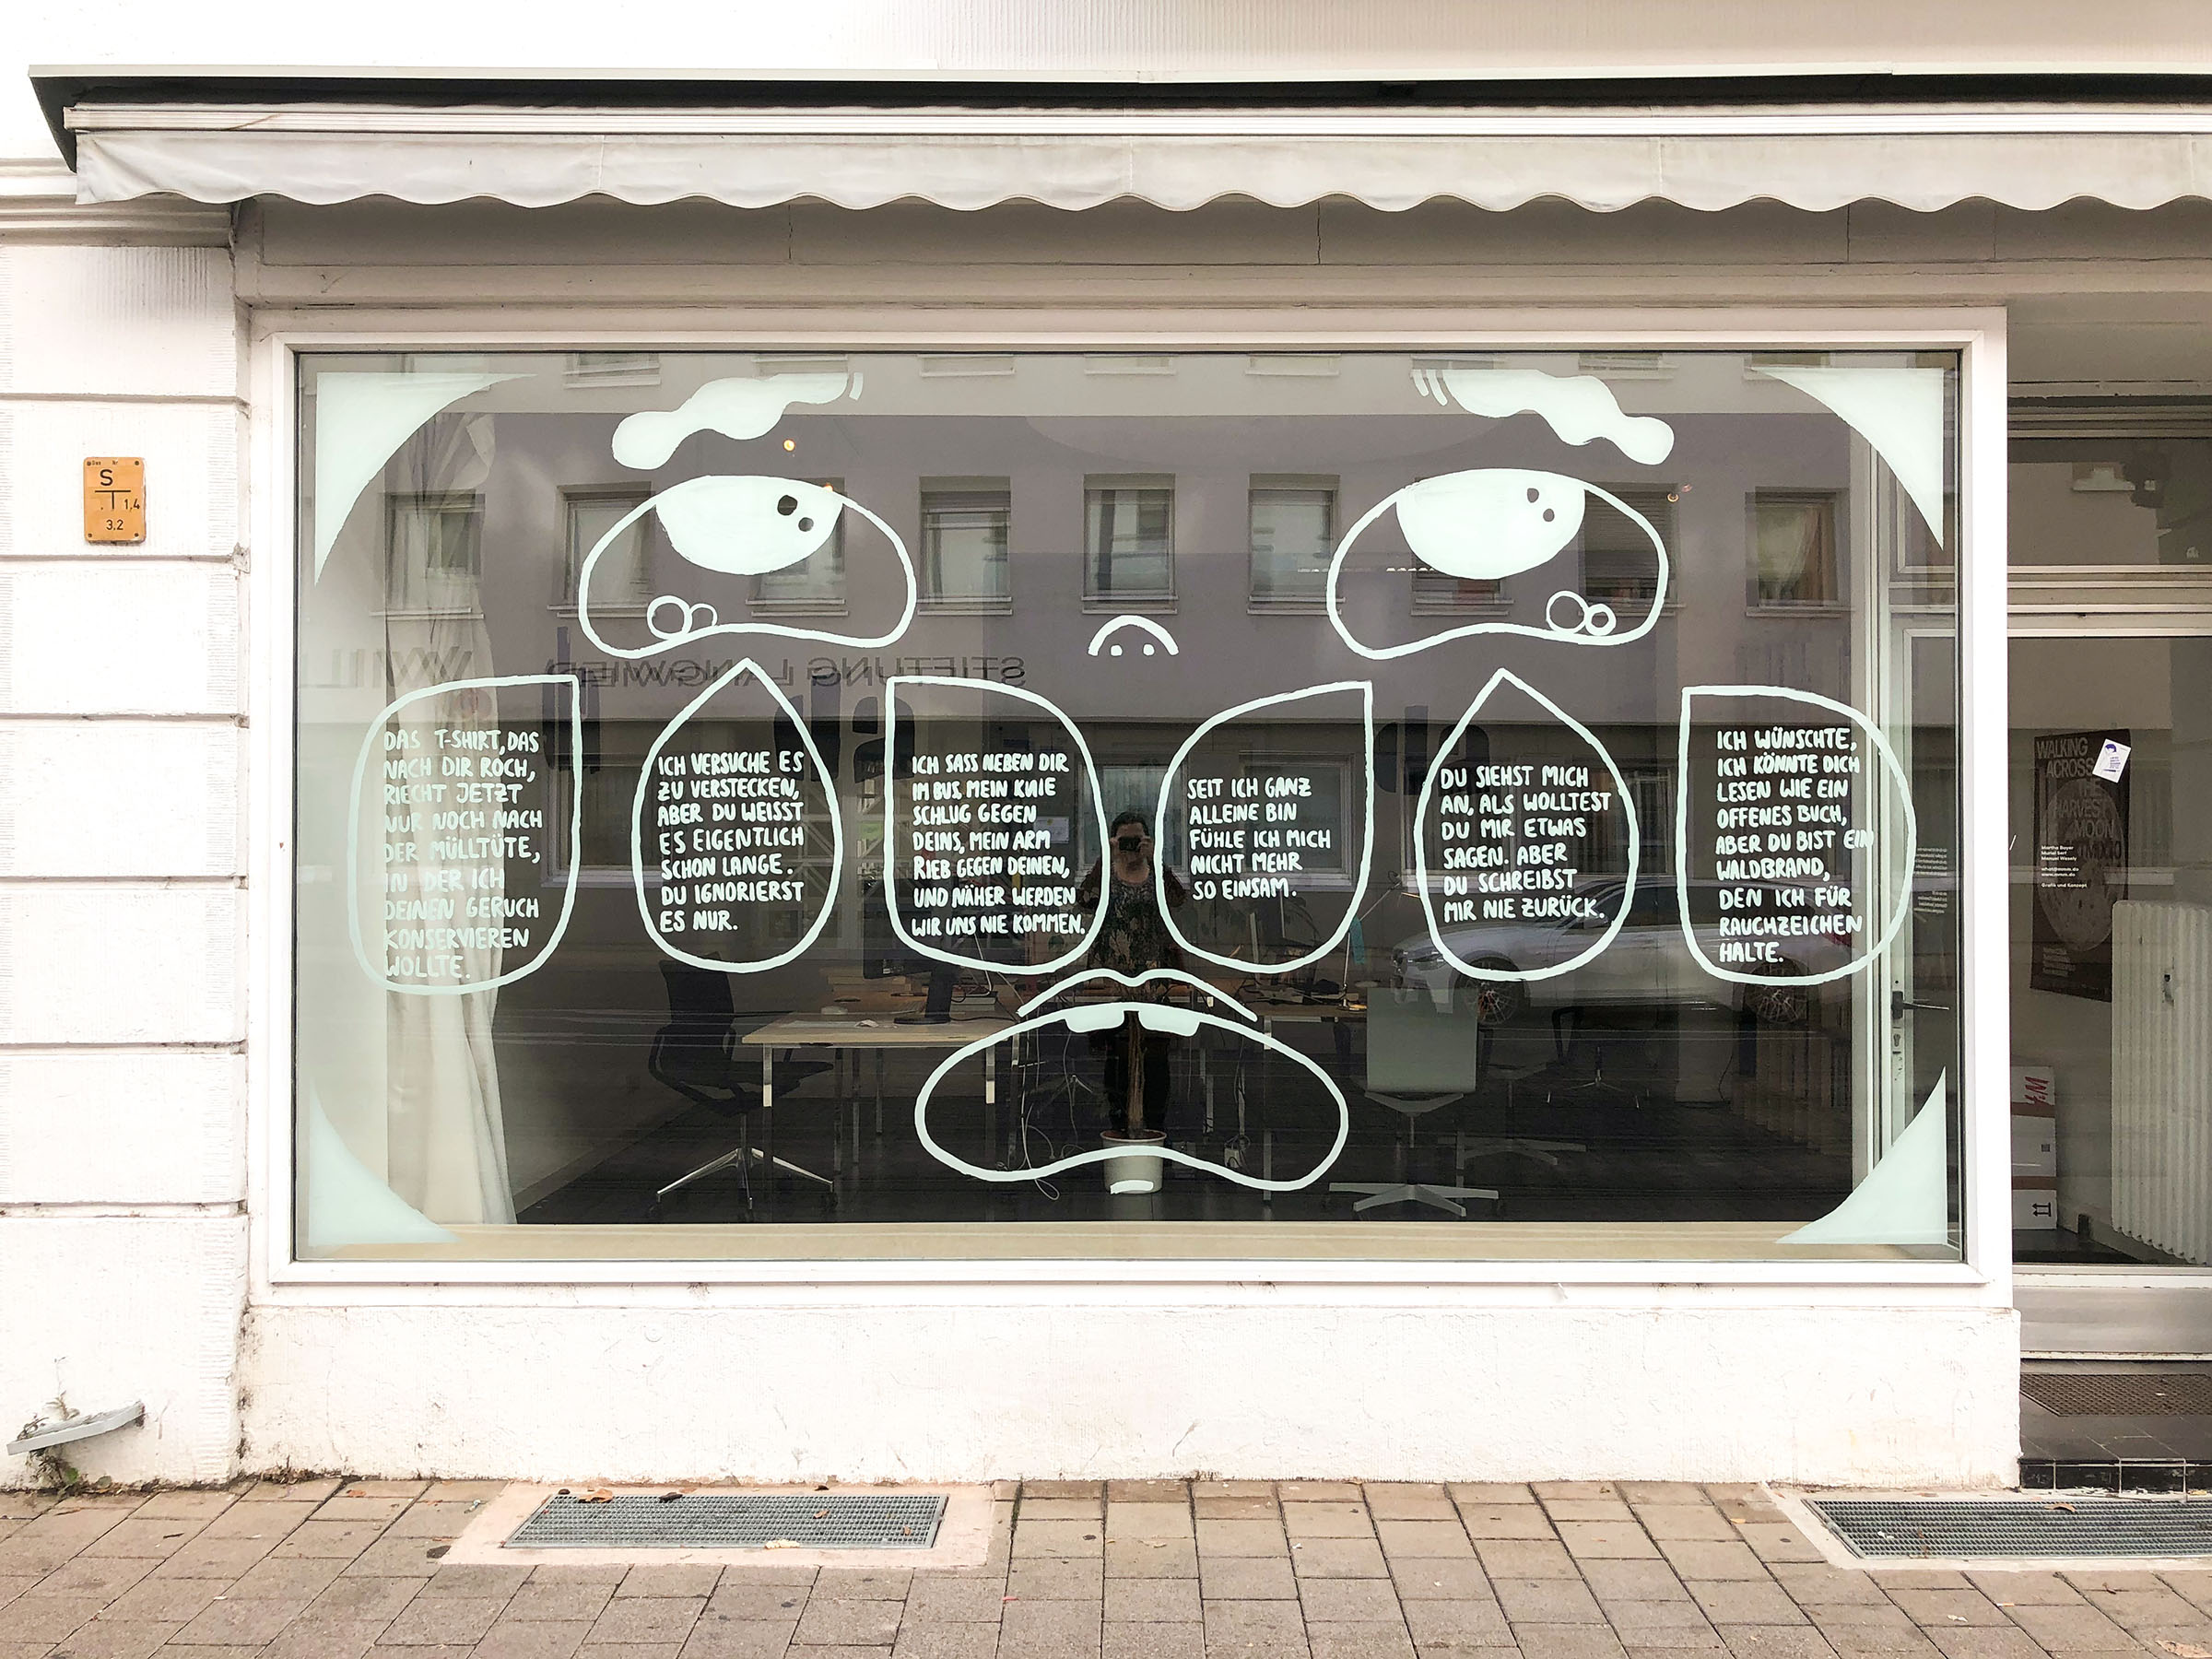 S
1,4
3,2
STIFTUNG LANGWIED
DAS T-SHIRT, DAS
NACH DIR ROCH,
RIECHT JETZT
NUR NOCH NACH
DER MÜLLTÜTE,
IN DER ICH
DEINEN GERUCH
KONSERVIEREN
WOLLTE.
ICH VERSUCHE ES
ZU VERSTECKEN,
ABER DU WEISST
ES EIGENTLICH
SCHON LANGE.
DU IGNORIERST
ES NUR.
ICH SASS NEBEN DIR
IM BUS, MEIN KNIE
SCHLUG GEGEN
DEINS, MEIN ARM
RIEB GEGEN DEINEN,
UND NÄHER WERDEN
WIR UNS NIE KOMMEN.
SEIT ICH GANZ
ALLEINE BIN
FÜHLE ICH MICH
NICHT MEHR
SO EINSAM.
DU SIEHST MICH
AN, ALS WOLLTEST
DU MIR ETWAS
SAGEN. ABER
DU SCHREIBST
MIR NIE ZURÜCK.
ICH WÜNSCHTE,
ICH KÖNNTE DICH
LESEN WIE EIN
OFFENES BUCH,
ABER DU BIST EIN
WALDBRAND,
DEN ICH FÜR
RAUCHZEICHEN
HALTE.
WALKING
ACROSS
THE
HARVEST
MOON
Grafik und Konzept
H&M